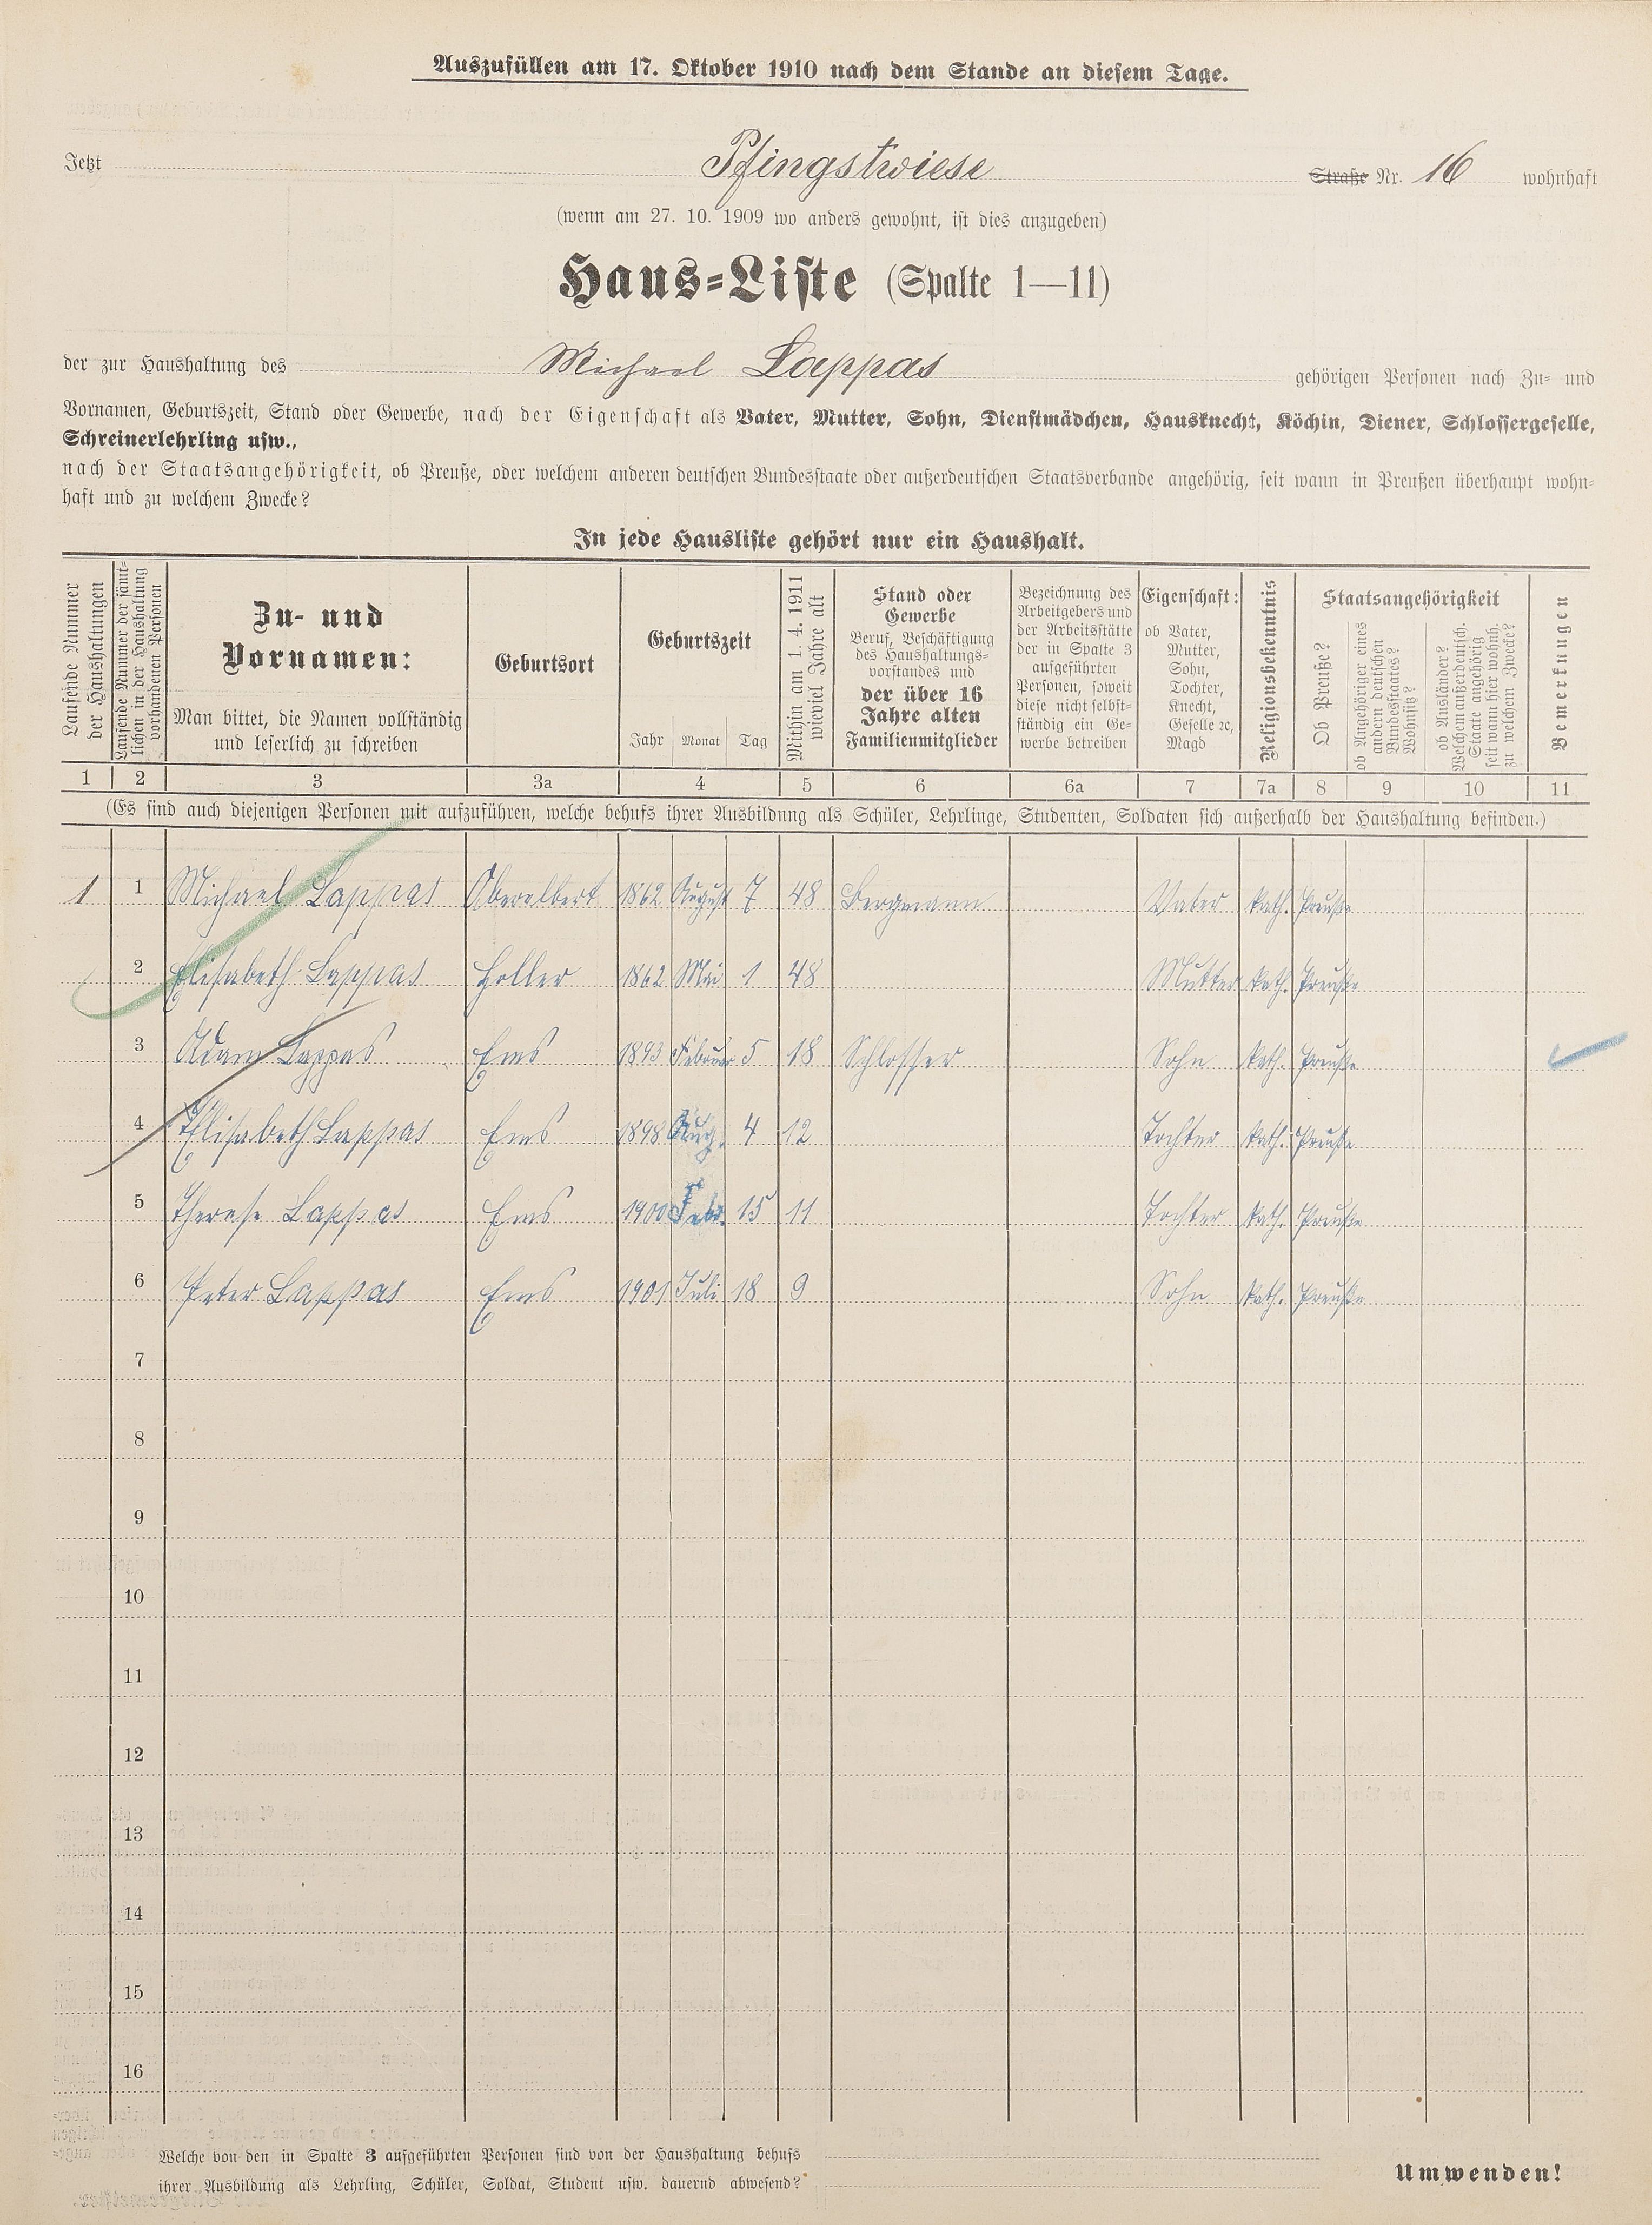 Auszufüllen am 17. Oktober 1910 nach dem Stande an diesem Tage.
Jetzt Pfingstwiese Straße Nr. 16 wohnhaft
(wenn am 27. 10. 1909 wo anders gewohnt, ist dies anzugeben)
Haus-Liste (Spalte 1—11)
der zur Haushaltung des Michael Lappas gehörigen Personen nach Zu- und
Vornamen, Geburtszeit, Stand oder Gewerbe, nach der Eigenschaft als Vater, Mutter, Sohn, Dienstmädchen, Hausknecht, Köchin, Diener, Schlossergeselle,
Schreinerlehrling usw.,
nach der Staatsangehörigkeit, ob Preuße, oder welchem anderen deutschen Bundesstaate oder außerdeutschen Staatsverbande angehörig, seit wann in Preußen überhaupt wohn-
haft und zu welchem Zwecke?
In jede Hausliste gehört nur ein Haushalt.
Laufende Nummer
der Haushaltungen
Laufende Nummer der sämt-
lichen in der Haushaltung
vorhandenen Personen
Zu- und
Vornamen:
Man bittet, die Namen vollständig
und leserlich zu schreiben
Geburtsort
Geburtszeit
Jahr Monat Tag
Mithin am 1. 4. 1911
wieviel Jahre alt
Stand oder
Gewerbe
Beruf, Beschäftigung
des Haushaltungs-
vorstandes und
der über 16
Jahre alten
Familienmitglieder
Bezeichnung des
Arbeitgebers und
der Arbeitsstätte
der in Spalte 3
aufgeführten
Personen, soweit
diese nicht selbst-
ständig ein Ge-
werbe betreiben
Eigenschaft:
ob Vater,
Mutter,
Sohn,
Tochter,
Knecht,
Geselle ꝛc,
Magd
Religionsbekenntnis
Staatsangehörigkeit
Ob Preuße?
ob Angehöriger eines
andern deutschen
Bundesstaates?
Wohnsitz?
ob Ausländer?
Welchem außerdeutsch.
Staate angehörig
seit wann hier wohnh.
zu welchem Zwecke?
Bemerkungen
1 2 3 3a 4 5 6 6a 7 7a 8 9 10 11
(Es sind auch diejenigen Personen mit aufzuführen, welche behufs ihrer Ausbildung als Schüler, Lehrlinge, Studenten, Soldaten sich außerhalb der Haushaltung befinden.)
1 1 Michael Lappas Oberelbert 1862 August 7 48 Bergmann Vater kath. Preuße
2 Elisabeth Lappas Holler 1862 Mai 1 48 Mutter kath. Preuße
3 Adam Lappas Ems 1893 Februar 5 18 Schlosser Sohn kath. Preuße
4 Elisabeth Lappas Ems 1898 Aug. 4 12 Tochter kath. Preuße
5 Therese Lappas Ems 1900 Febr. 15 11 Tochter kath. Preuße
6 Peter Lappas Ems 1901 Juli 18 9 Sohn kath. Preuße
7
8
9
10
11
12
13
14
15
16
Welche von den in Spalte 3 aufgeführten Personen sind von der Haushaltung behufs
ihrer Ausbildung als Lehrling, Schüler, Soldat, Student usw. dauernd abwesend?
Umwenden!